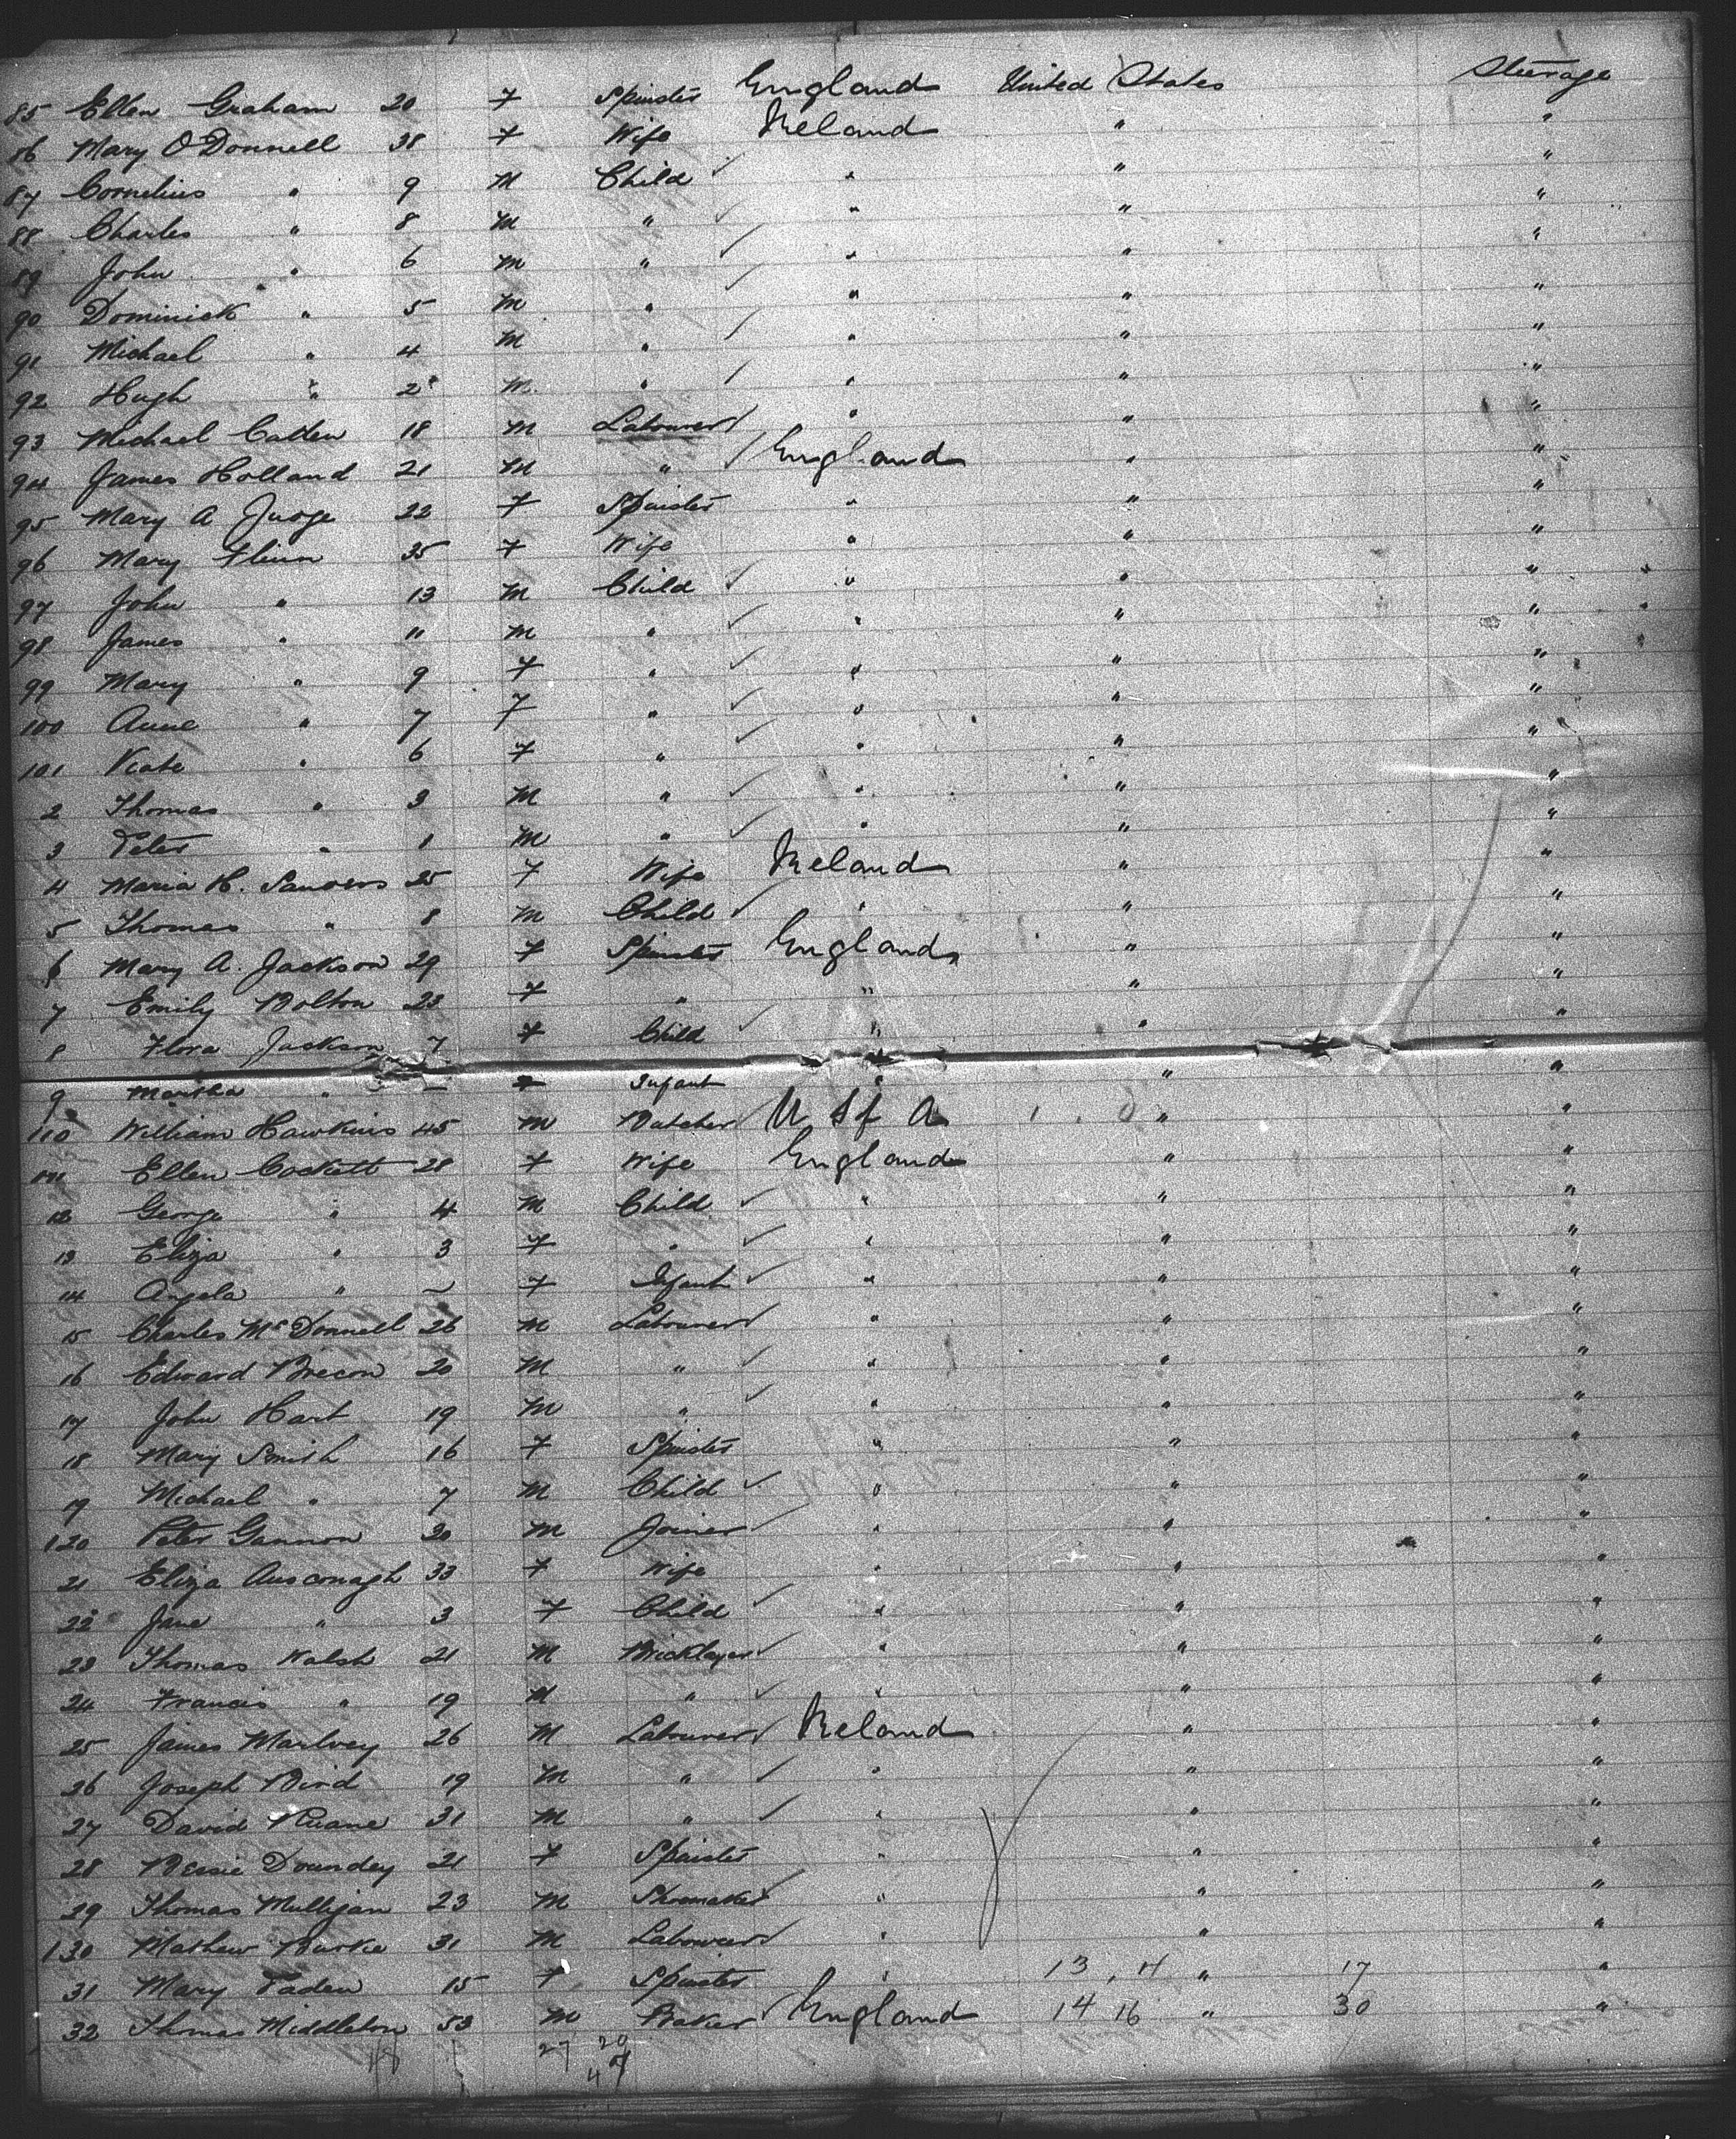 85 Ellen Graham 20 F Spinster England United States Steerage
86 Mary O'Donnell 38 F Wife Ireland " "
87 Cornelius " 9 M Child " " "
88 Charles " 8 M " " " "
89 John " 6 M " " " "
90 Dominick " 5 M " " " "
91 Michael " 4 M " " " "
92 Hugh " 2 M " " " "
93 Michael 18 M Labourer " " "
94 James Holland 21 M " England " "
95 Mary A Judge 22 F Spinster " " "
96 Mary Flinn 35 F Wife " " "
97 John " 13 M Child " " "
98 James " 11 M " " " "
99 Mary " 9 F " " " "
100 Anne " 7 F " " " "
101 Kate " 6 F " " " "
2 Thomas " 3 M " " " "
3 Peter " 1 M " " " "
4 Maria H. Sanders 25 F Wife Ireland " "
5 Thomas " 8 M Child " " "
6 Mary A. Jackson 29 F Spinster England " "
7 Emily Bolton 23 F " " " "
8 Flora Jackson 7 F Child " " "
9 Martha " – F Infant " " "
110 William Hawkins 45 M Butcher U S of A " "
111 Ellen Cockett 28 F Wife England " "
12 George " 4 M Child " " "
13 Eliza " 3 F " " " "
14 Angela " – F Infant " " "
15 Charles McDonnell 26 M Labourer " " "
16 Edward Brecon 20 M " " " "
17 John Hart 19 M " " " "
18 Mary Smith 16 F Spinster " " "
19 Michael " 7 M Child " " "
120 Peter Gannon 20 M Joiner " " "
21 Eliza 33 F Wife " " "
22 Jane " 3 F Child " " "
23 Thomas Walsh 21 M Bricklayer " " "
24 Francis " 19 M " " " "
25 James 26 M Labourer Ireland " "
26 Joseph Bird 19 M " " " "
27 David Ruane 31 M " " " "
28 Bessie 21 F Spinster " " "
29 Thomas Mulligan 23 M Shoemaker " " "
130 Mathew Burke 31 M Labourer " " "
31 Mary Faden 15 F Spinster " 13 , 4 " 17 "
32 Thomas Middleton 53 M Baker England 14 16 " 30 "
27 20
47